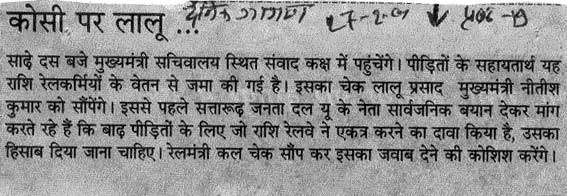 कोसी पर लालू ...
साढ़े दस बजे मुख्यमंत्री सचिवालय स्थित संवाद कक्ष में पहुंचेंगे। पीड़ितों के सहायतार्थ यह
राशि रेलकर्मियों के वेतन से जमा की गई है। इसका चेक लालू प्रसाद मुख्यमंत्री नीतीश
कुमार को सौंपेंगे। इससे पहले सत्तारूढ़ जनता दल यू के नेता सार्वजनिक बयान देकर मांग
करते रहे हैं कि बाढ़ पीड़ितों के लिए जो राशि रेलवे ने एकत्र करने का दावा किया है, उसका
हिसाब दिया जाना चाहिए। रेलमंत्री कल चेक सौंप कर इसका जवाब देने की कोशिश करेंगे।